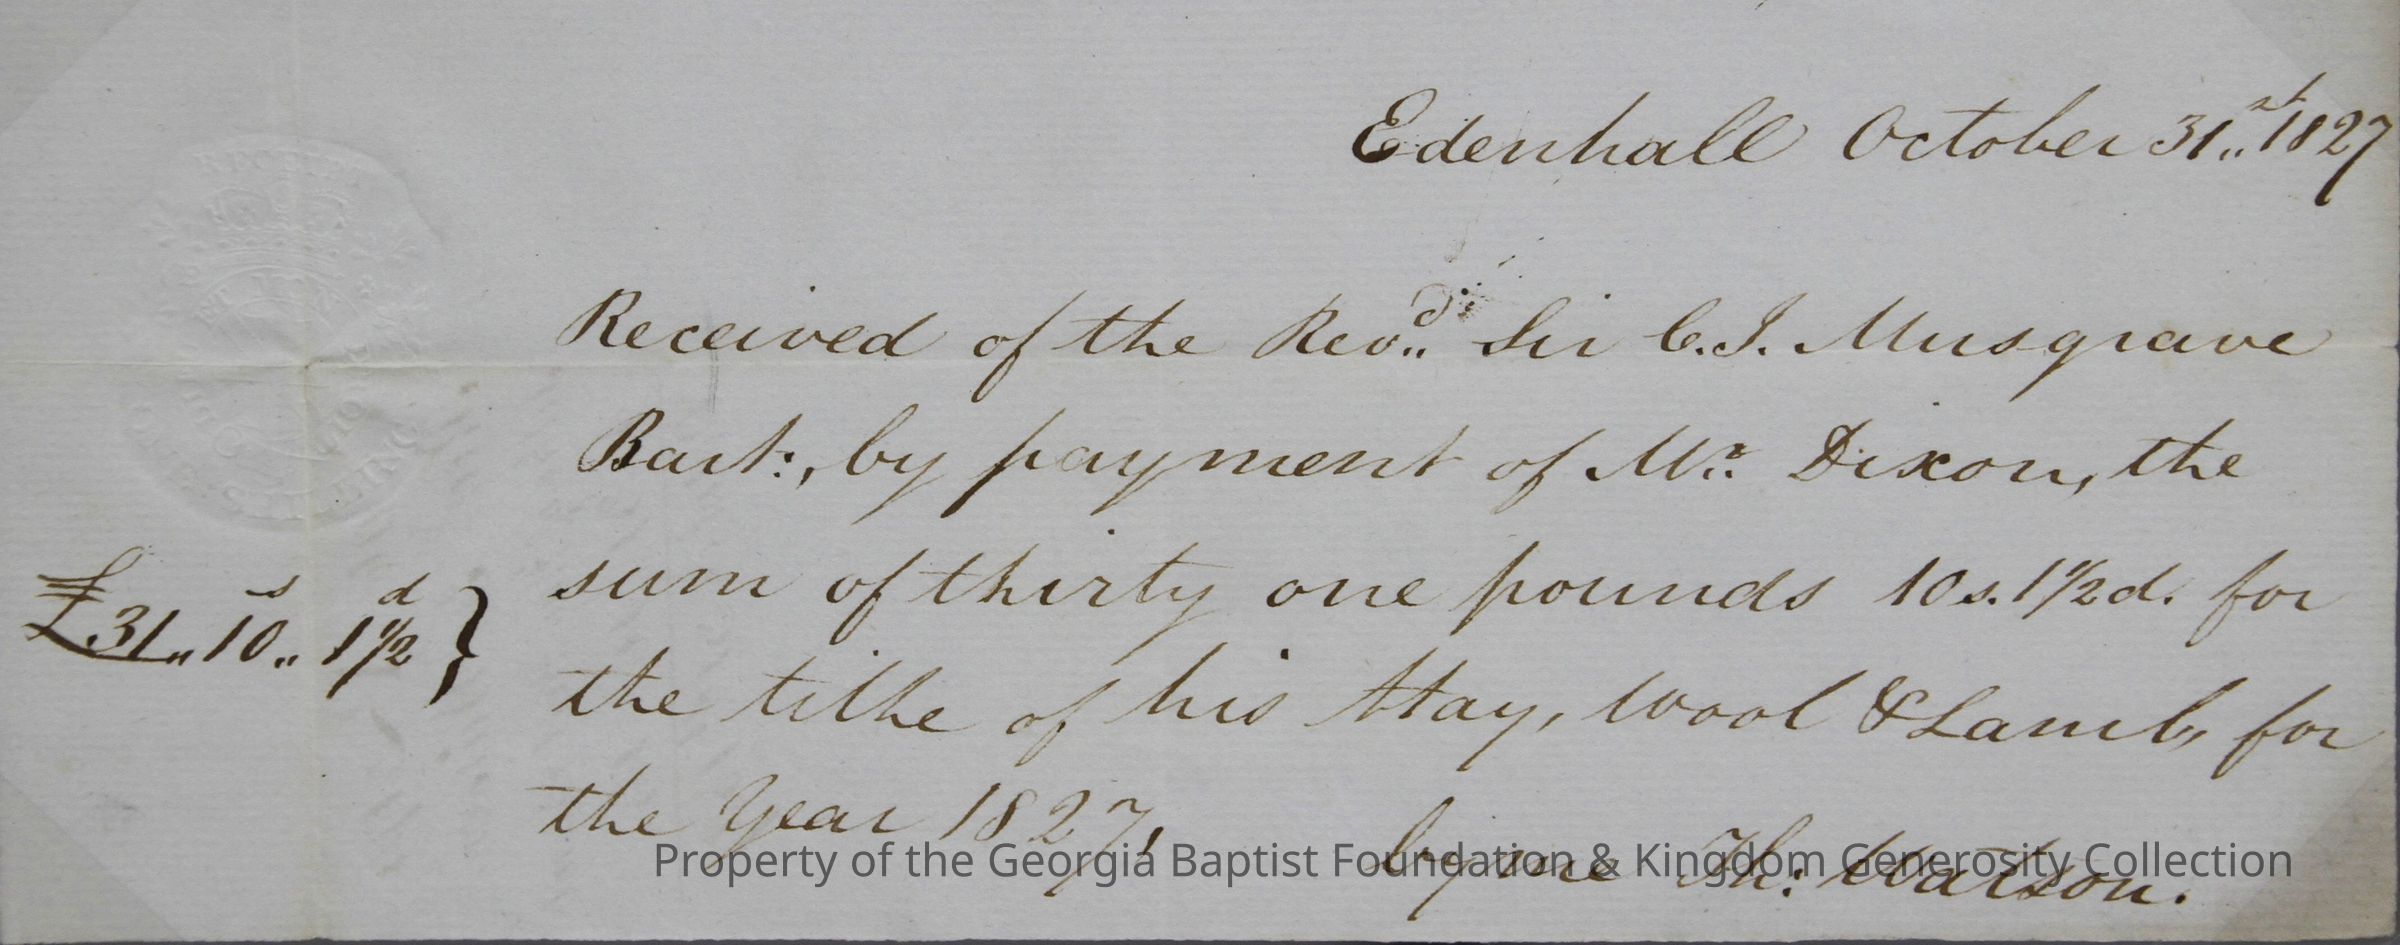 Edenhall October 31st 1827
Received of the Revd. Sir C.J. Musgrave
Bart:, by payment of Mr. Dixon, the
sum of thirty one pounds 10s. 1 1/2d. for
£31,, 10s,, 1 1/2d }
the tithe of his Hay, Wool & Lamb, for
the Year 1827,
by me Th: Watson.
Property of the Georgia Baptist Foundation & Kingdom Generosity Collection
RECEIPT